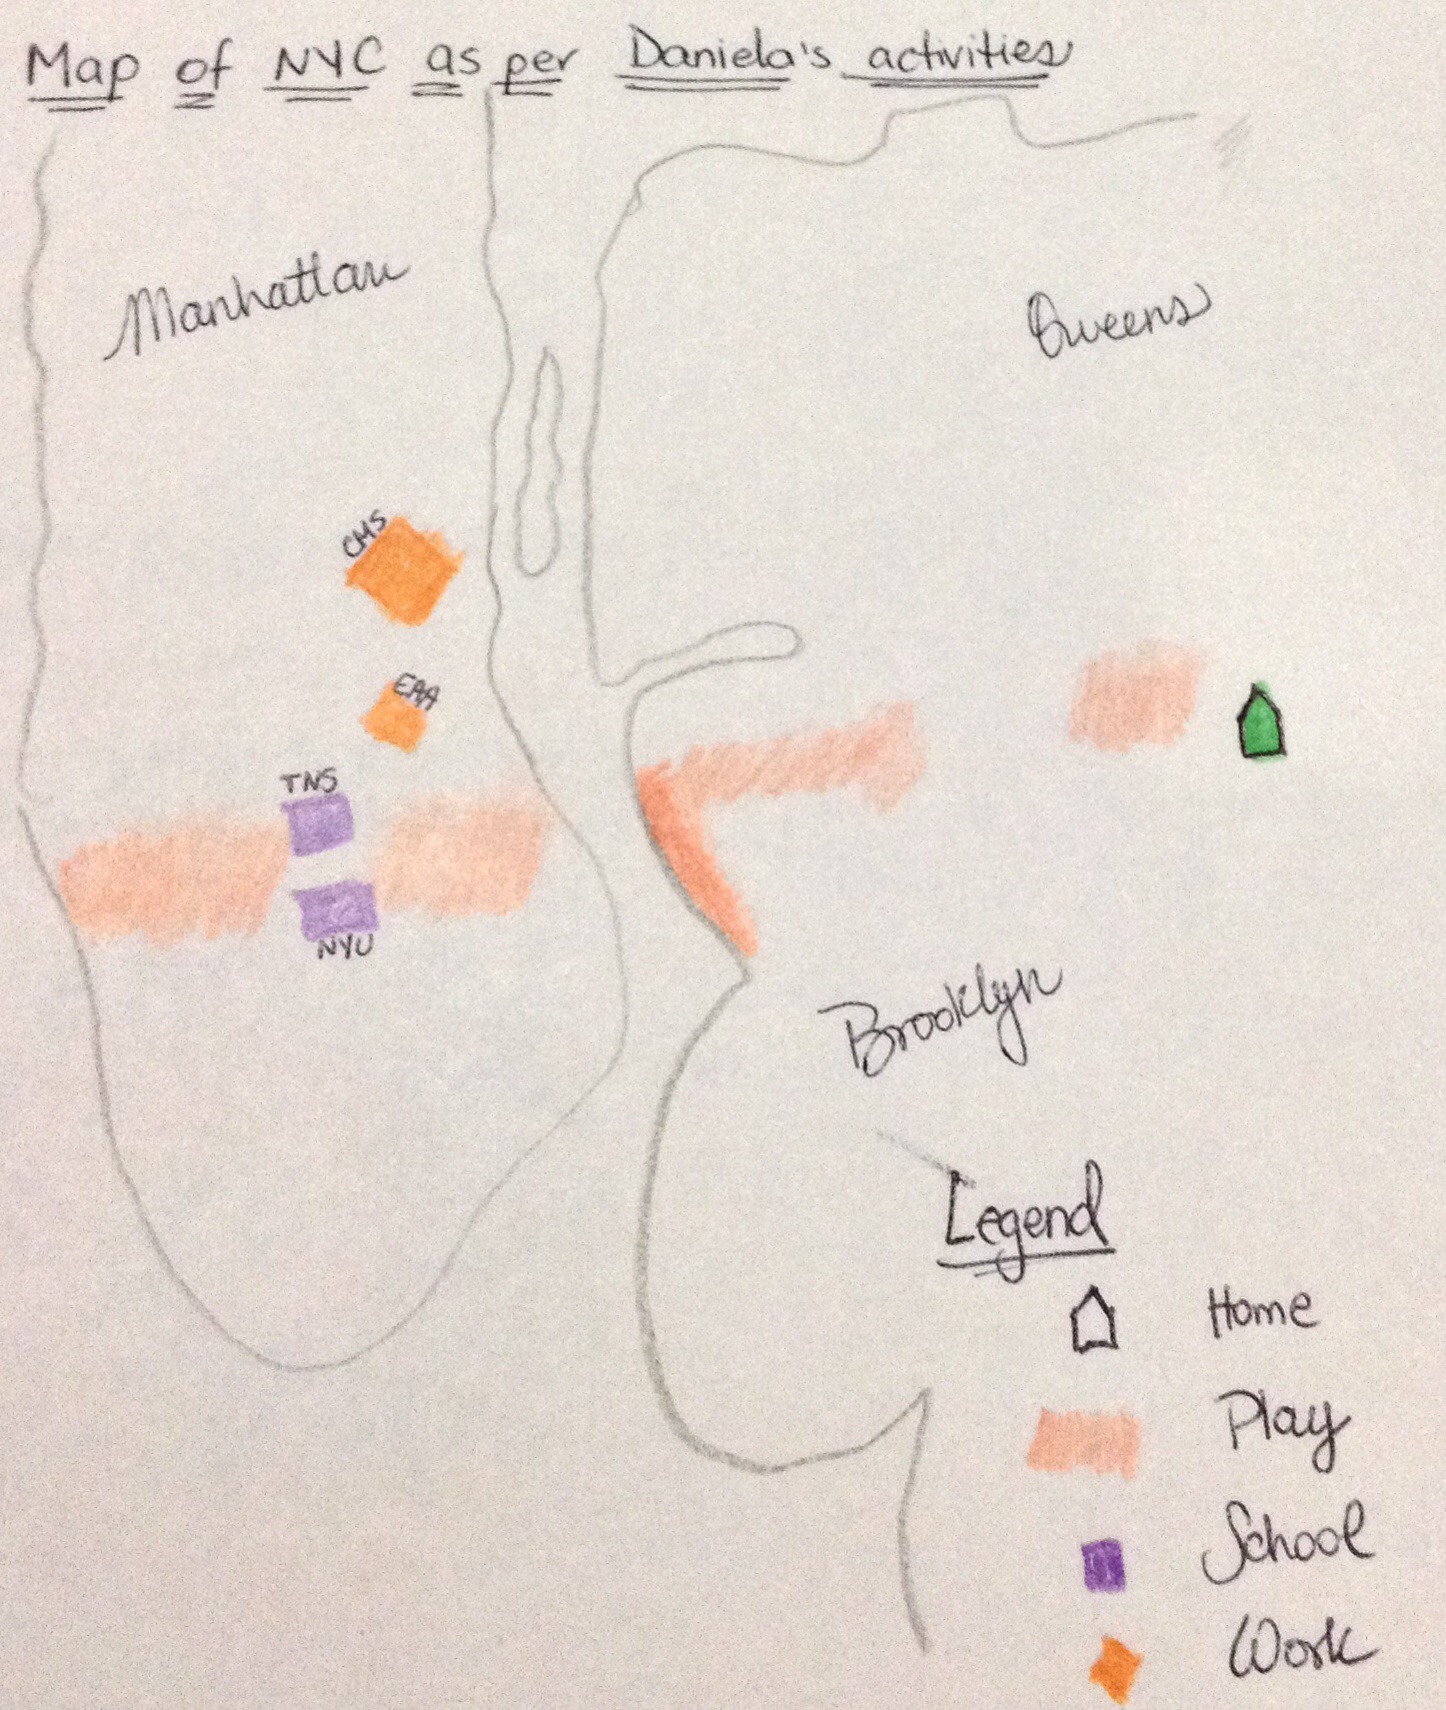 Map of NYC as per Daniela's activities
Manhattan
Queens
CMS
EAA
TNS
NYU
Brooklyn
Legend
Home
Play
School
Work